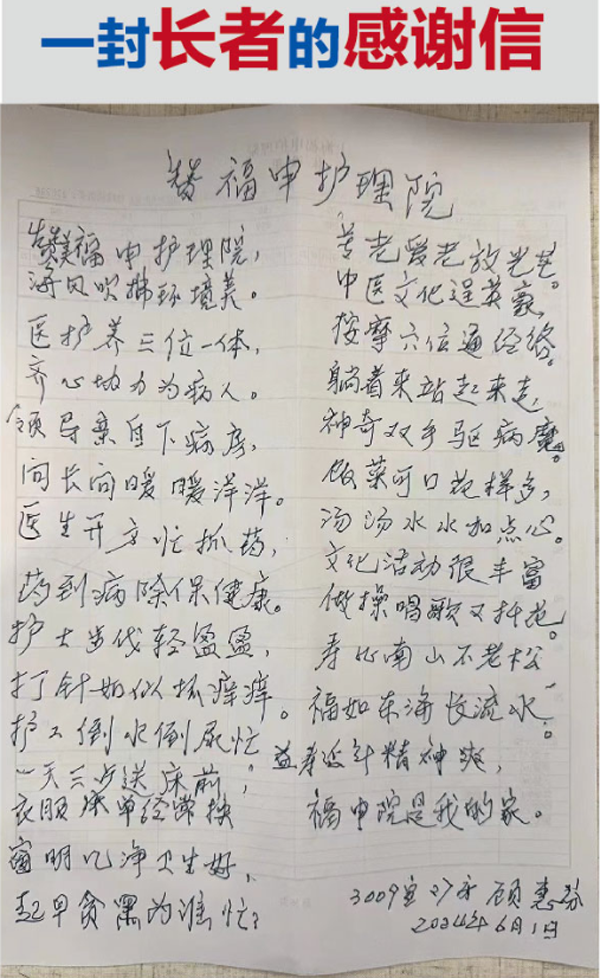 一封长者的感谢信
赞福申护理院
赞美福申护理院，
海风吹拂环境美。
医护养三位一体，
齐心协力为病人。
领导亲自下病房，
问长问暖暖洋洋。
医生开方忙抓药，
药到病除保健康。
护士步伐轻盈盈，
打针如似抓痒痒。
护工倒水倒尿忙
一天三占送床前，
衣服床单经常换
窗明几净卫生好，
起早贪黑为谁忙？
苦老爱老放光芒。
中医文化逞英豪，
按摩六位通经络。
躺着来站起来走，
神奇双手驱病魔。
饭菜可口花样多，
汤汤水水加点心。
文化活动很丰富
做操唱歌又折花。
寿比南山不老松
福如东海长流水。
益寿延年精神爽，
福申院是我的家。
3009室 顾惠芬
2024年6月1日